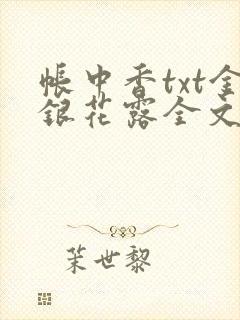 帐中香txt金
银花露全文
茉世黎